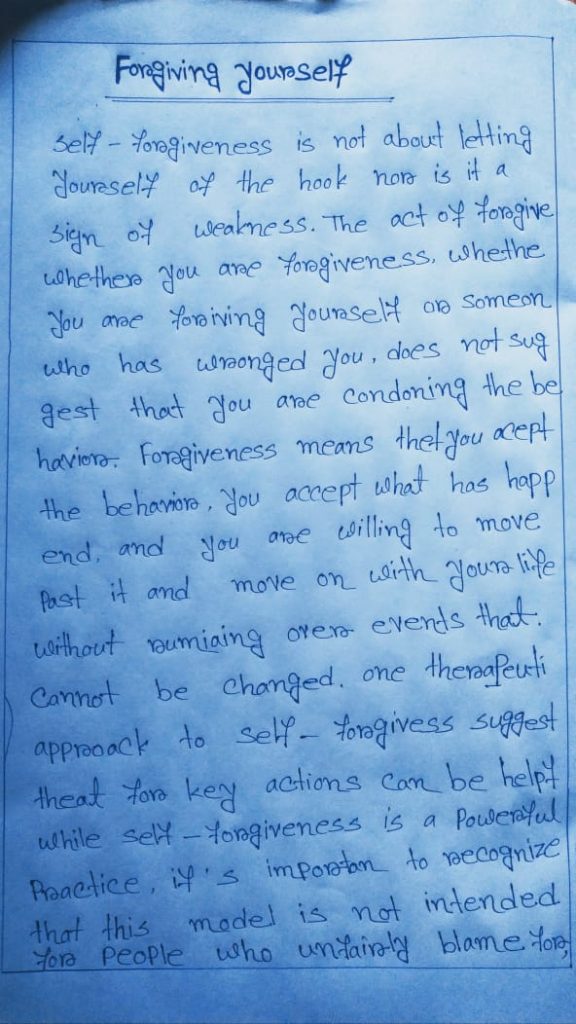 Forgiving yourself
self - forgiveness is not about letting
yourself of the hook nor is it a
sign of weakness. The act of forgive
whether you are forgiveness, whethe
you are forgiving yourself or someon
who has wronged you, does not sug
gest that you are condoning the be
havior. Forgiveness means thet you acept
the behavior, you accept what has happ
end, and you are willing to move
Past it and move on with your life
without rumiaing over events that.
Cannot be changed. one therapeuti
approack to self - forgivess suggest
theat for key actions can be helpf
while self - forgiveness is a Powerful
Practice, it's importan to recognize
that this model is not intended
for people who unfairly blame for,